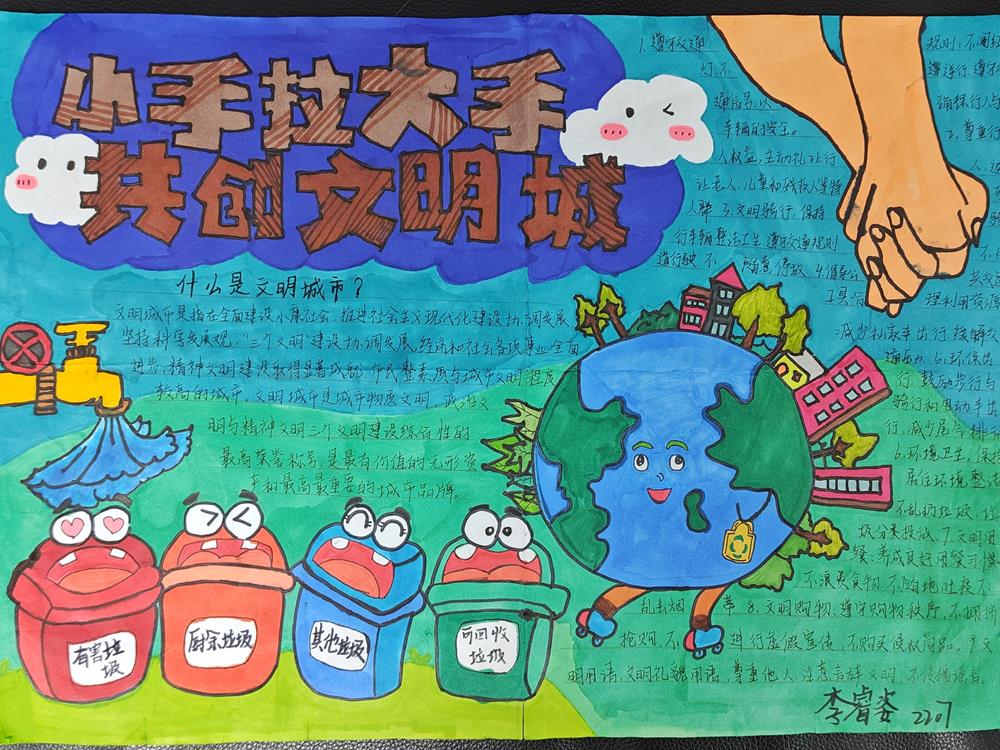 小手拉大手
共创文明城
什么是文明城市？
文明城市是指在全面建设小康社会，推进社会主义现代化建设协调发展，
坚持科学发展观，"三个文明"建设协调发展，经济和社会各项事业全面
进步，精神文明建设取得显著成的 市民整素质与城市文明程度
较高的城市。文明城市是城市物质文明，政治文
明与精神文明三个文明建设综合性的
最高荣誉称号，是最有价值的无形资
产和最高最重要的城市品牌。
有害垃
圾
厨余垃圾
其他垃圾
可回收
垃圾
1.遵守交通 规则：不闯红
灯、不
通信号，以 确保行人与
车辆的安全。 2.尊重行
人权益，主动礼让行
让老人，儿童和残疾人等特
人群 3.文明骑行，保持
行车辆整洁卫生 遵守交通规则
道行驶 不 随意停放
工具 理利用资源
减少私家车出行，缓解
通压力 5.环保出
行，鼓励步行与
骑行和电动车出
行，减少尾气排
6.环境卫生，保持
居住环境整洁
不乱扔垃圾，
圾分类投放。7.文明用
餐：养成良好用餐习惯
不浪费食物，不随地吐痰不
乱丢烟 蒂 8.文明购物：遵守购物秩序，不拥挤
抢购，不 进行虚假宣传，不购买侵权商品。9.文
明用语，文明礼貌用语，尊重他人，注意言辞文明，不传播谣言。
李睿姿 2207